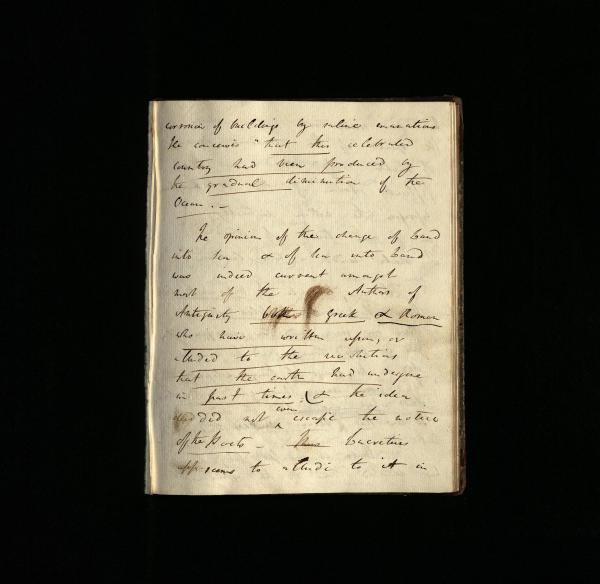 corrosion of buildings by saline emanations
He conceives "that this celebrated
country had been produced by
the gradual diminution of the
Ocean. —
The opinion of the change of land
into sea & of sea into land
was indeed current amongst
most of the Authors of
Antiquity both Greek & Roman
who have written upon, or
alluded to the revolutions
that the earth had undergone
in past times. & the idea
did not even escape the notice
of the Poets — Thus Lucretius
appears to allude to it in